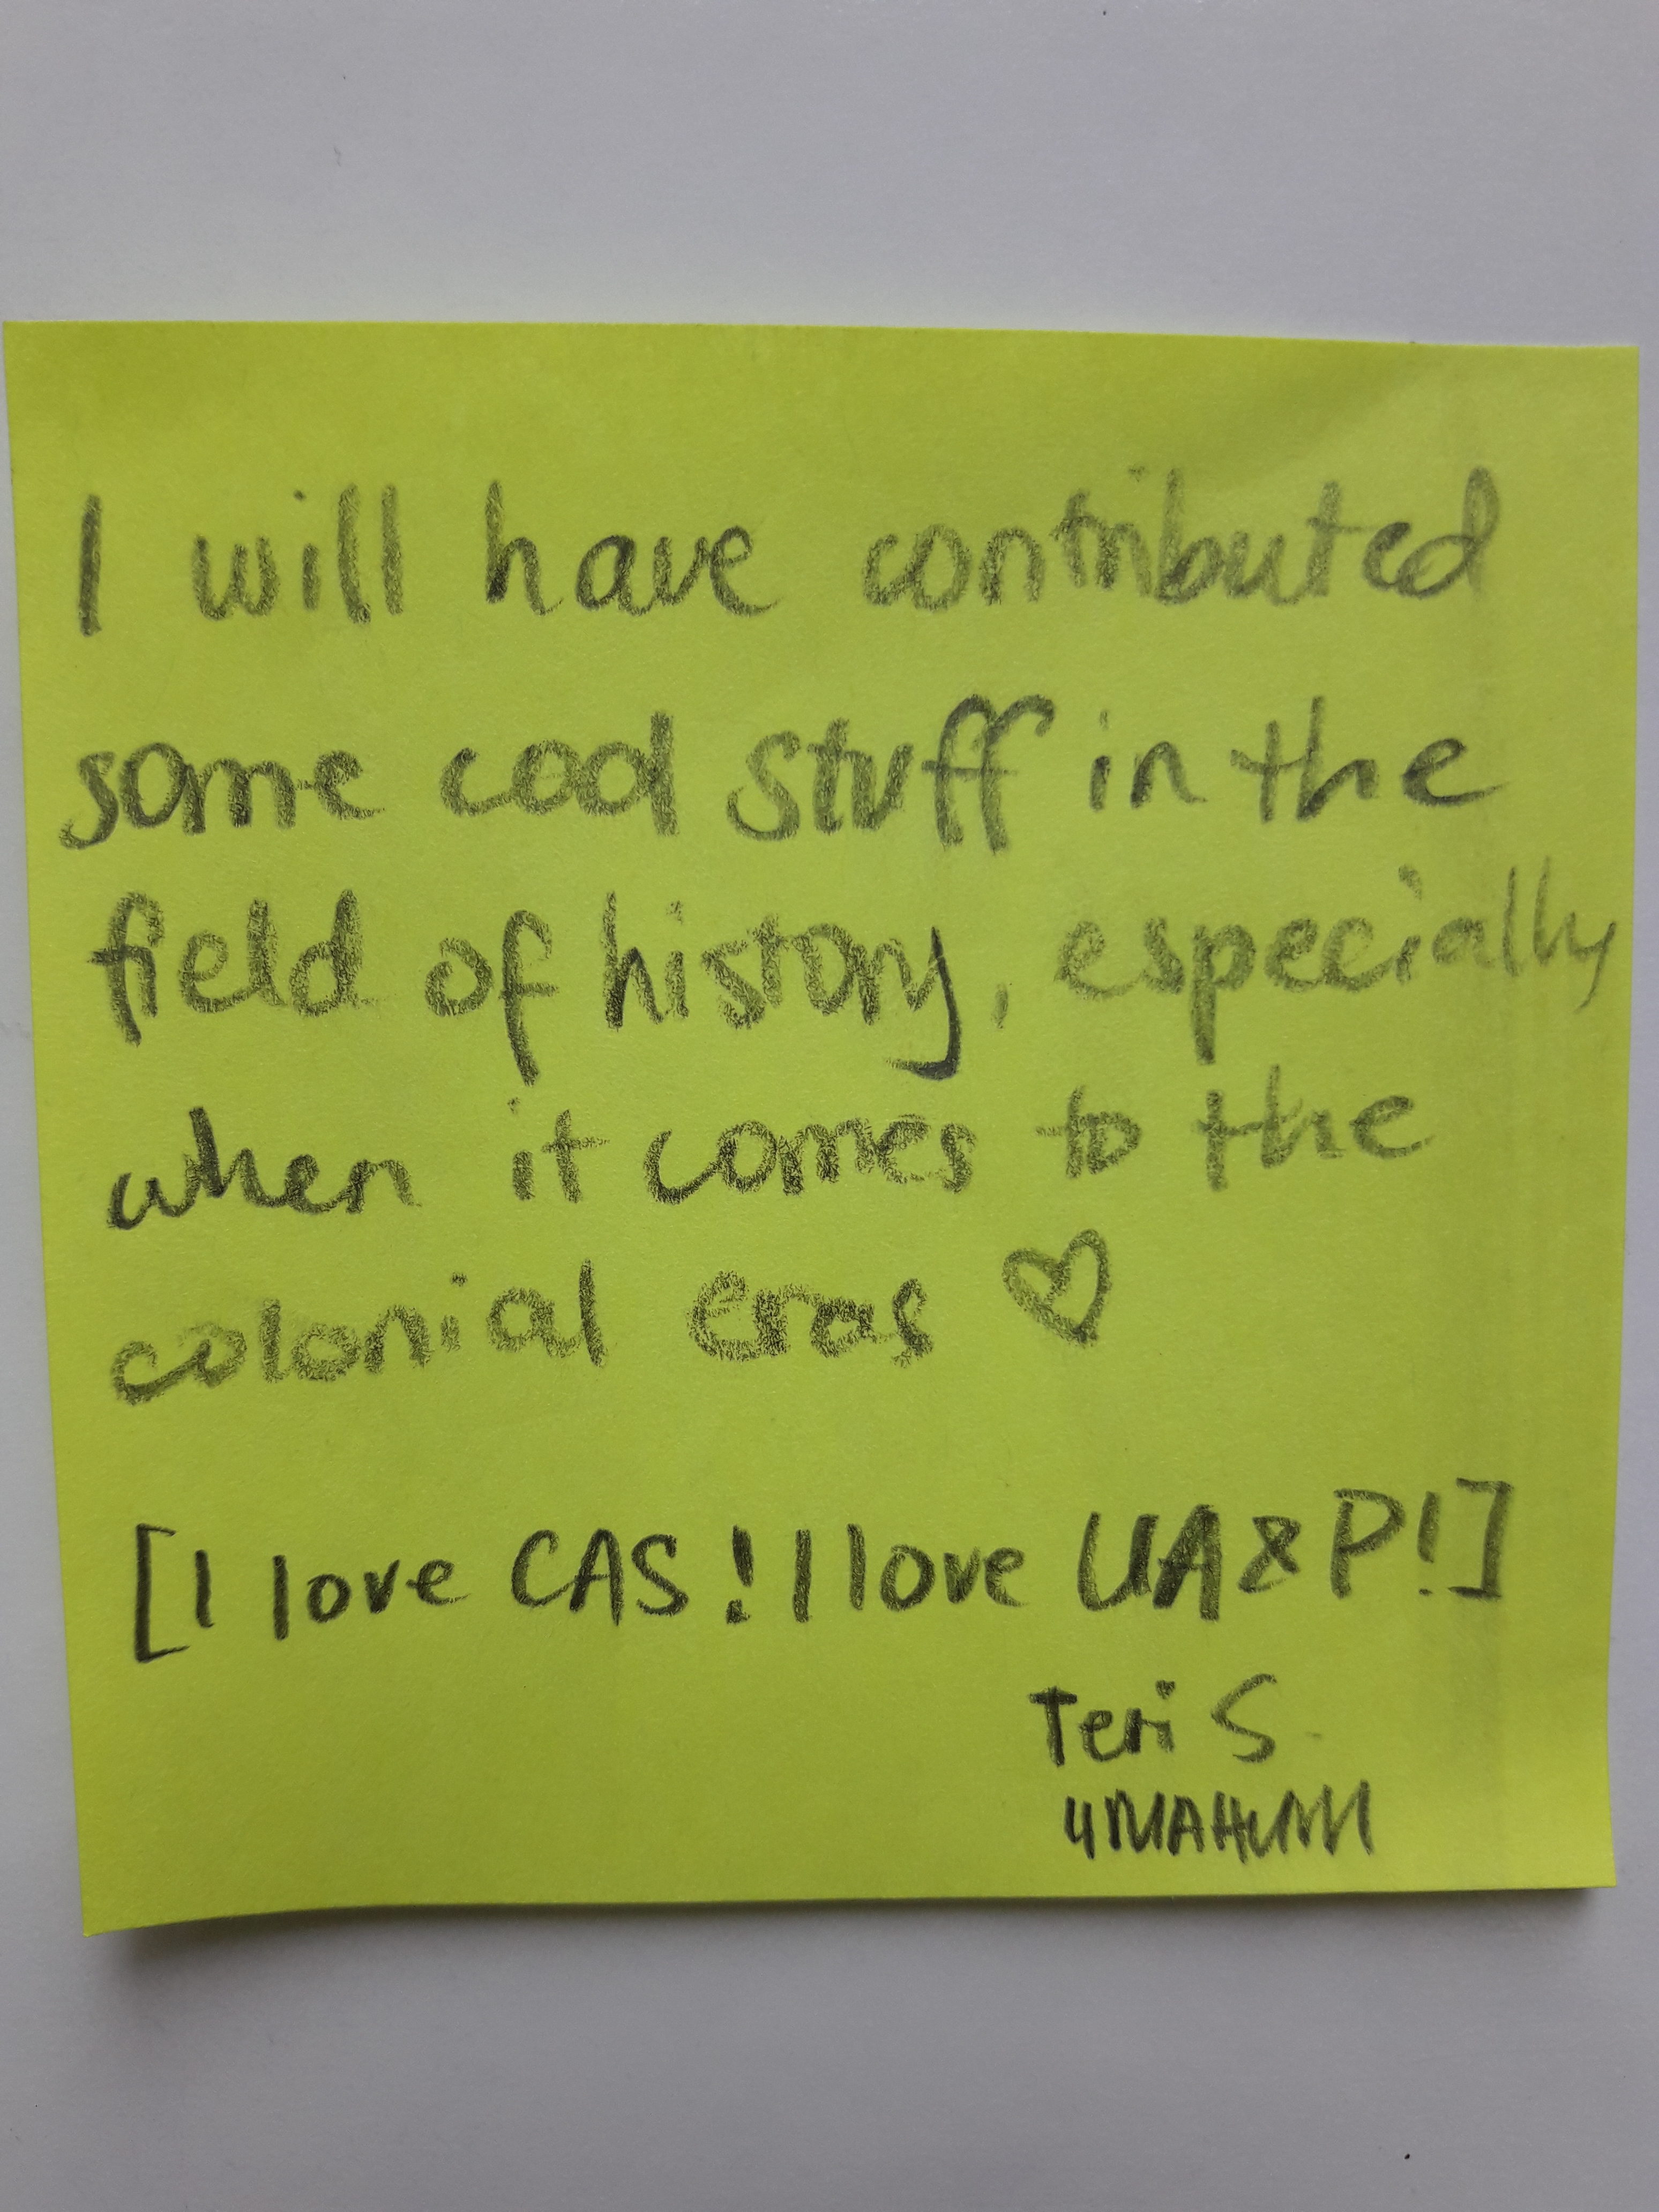 I will have contributed
some cool stuff in the
field of history, especially
when it comes to the
colonial eras ♡
[I love CAS! I love UA&P!]
Teri S.
4MAHUM